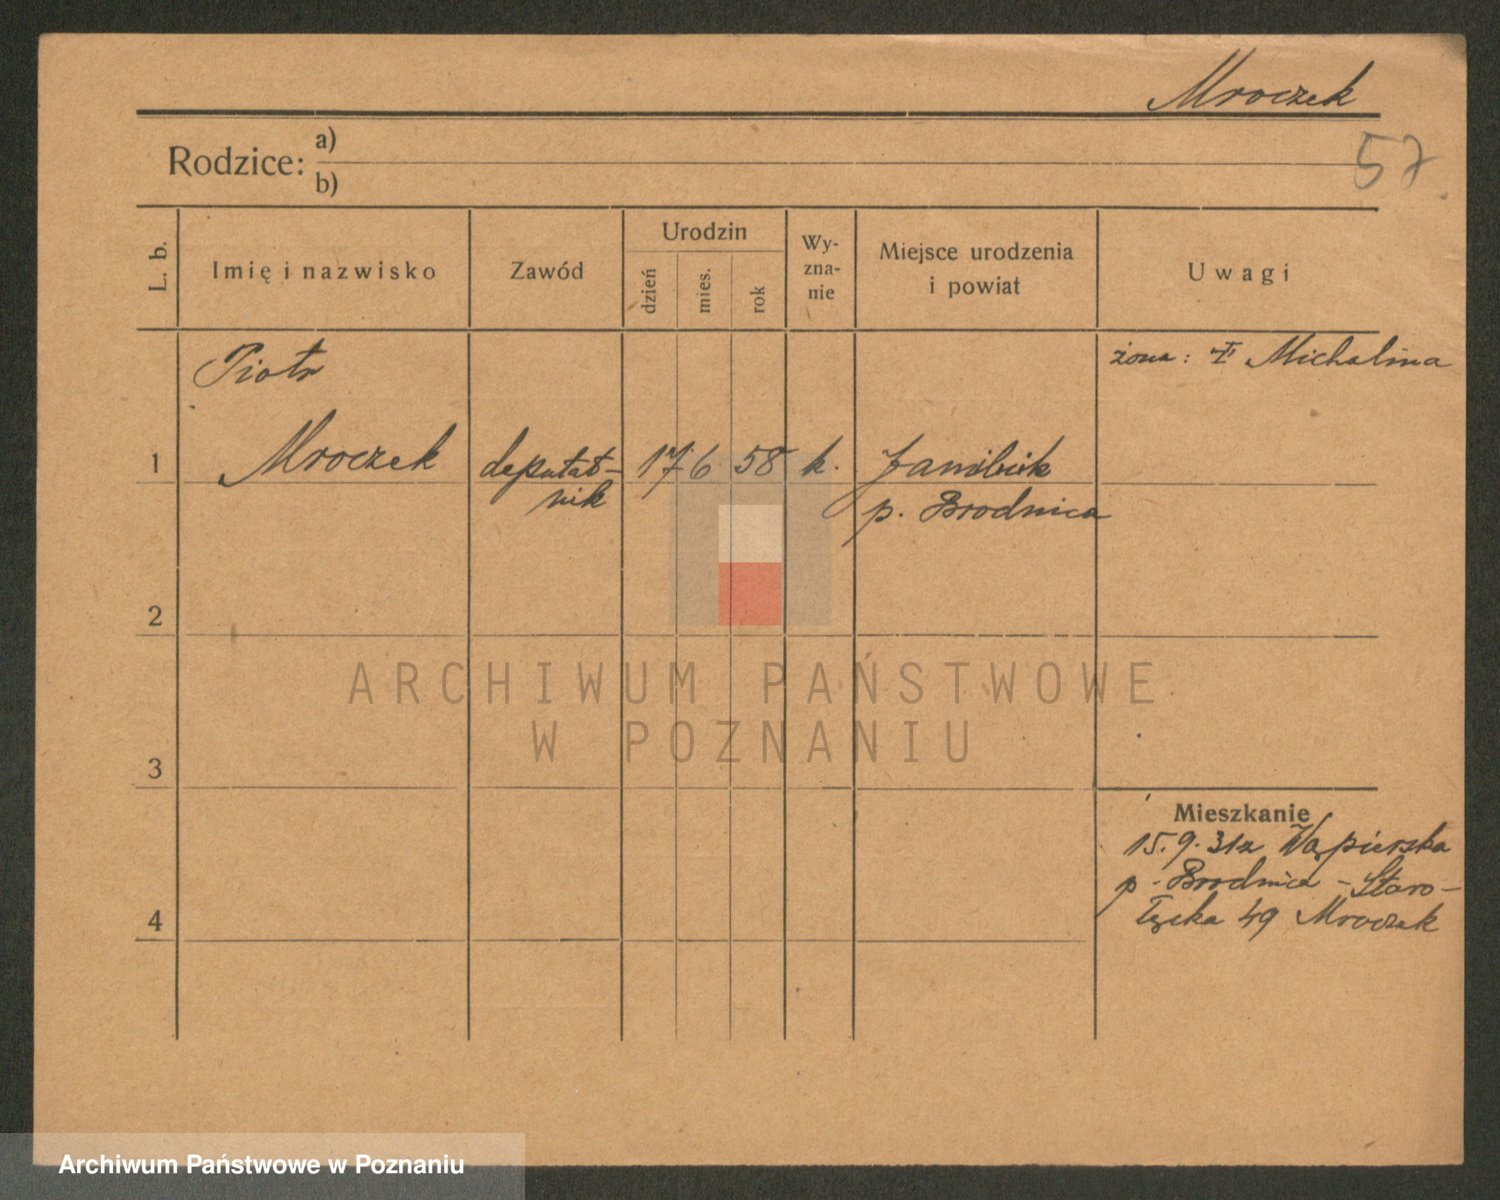 Mroczek
57
Rodzice:
a)
b)
L. b.
Imię i nazwisko
Zawód
Urodzin
dzień
mies.
rok
Wy-
zna-
nie
Miejsce urodzenia
i powiat
Uwagi
Piotr
żona: Michalina
1
Mroczek
deputat-
nik
17
6
58
k.
p. Brodnica
2
ARCHIWUM PAŃSTWOWE
W POZNANIU
3
Mieszkanie
15.9.31 z Wąpierska
4
p. Brodnica - Staro-
łęcka 49 Mroczek
Archiwum Państwowe w Poznaniu